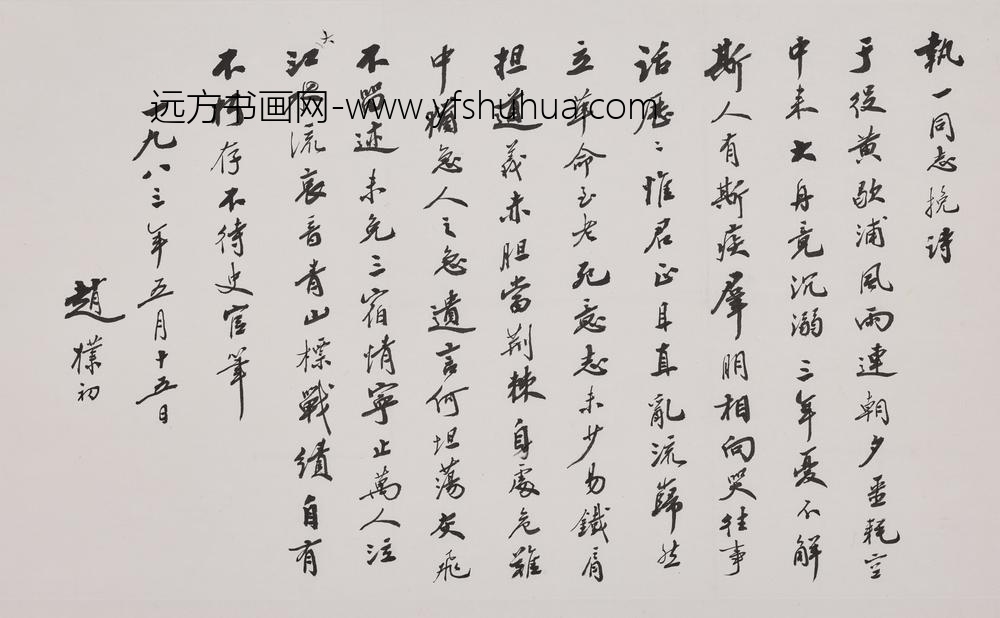 執一同志挽詩
于役黄歇浦風雨連朝夕噩耗空
中来大舟竟沉溺三年憂不解
斯人有斯疾羣朋相向哭往事
話歷〻惟君正且直亂流巋然
立革命至老死意志未少易鐵肩
担道義赤胆當荆棘身處危難
中猶急人之急遺言何坦蕩灰飛
不留迹未免三宿情寧止萬人泣
大江揚流哀音青山標戰績自有
不朽存不待史官筆
一九八三年五月十五日
趙樸初
远方书画网-www.yfshuhua.com